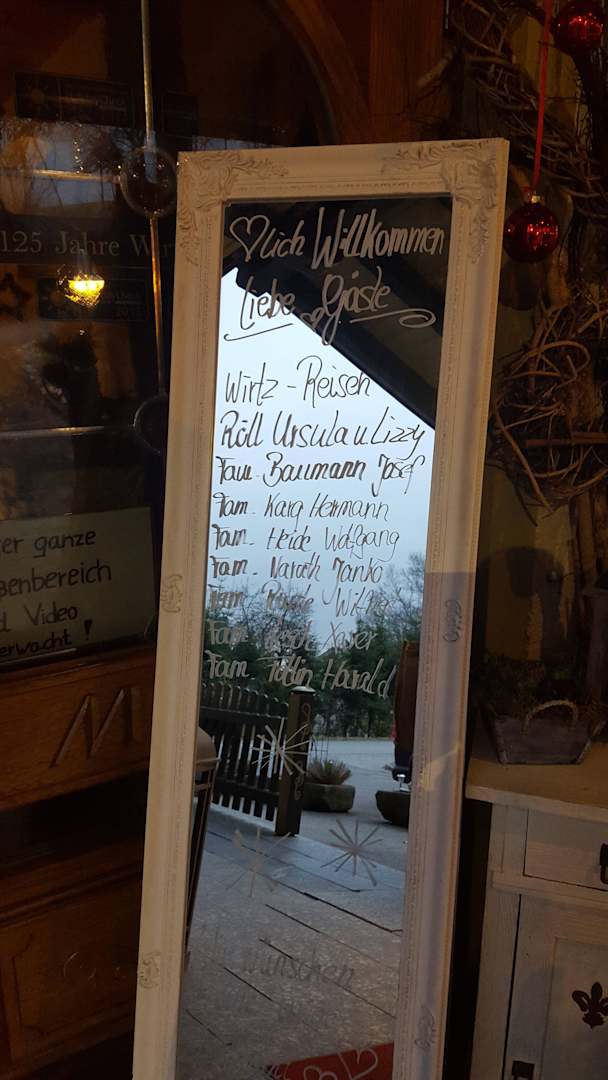 ♡lich Willkommen
Liebe Gäste
Wirtz - Reisen
Röll Ursula u. Lizzy
Fam. Baumann Josef
Fam. Karg Hermann
Fam. Heide Wolfgang
Fam. Janko
Fam.
Fam. Xaver
Fam. Harald
wünschen
125 Jahre
er ganze
ßenbereich
d Video
erwacht!
M